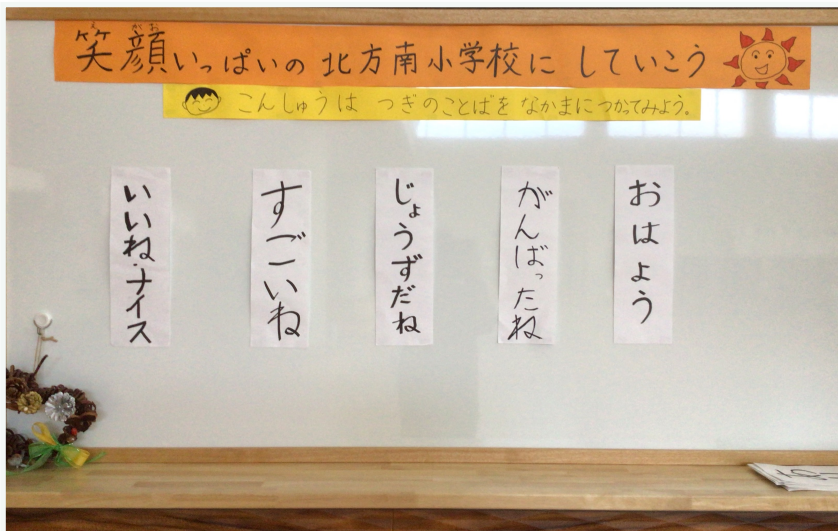 笑顔いっぱいの 北方南小学校に していこう
こんしゅうは つぎのことばを なかまに つかってみよう。
おはよう
がんばったね
じょうずだね
すごいね
いいね・ナイス